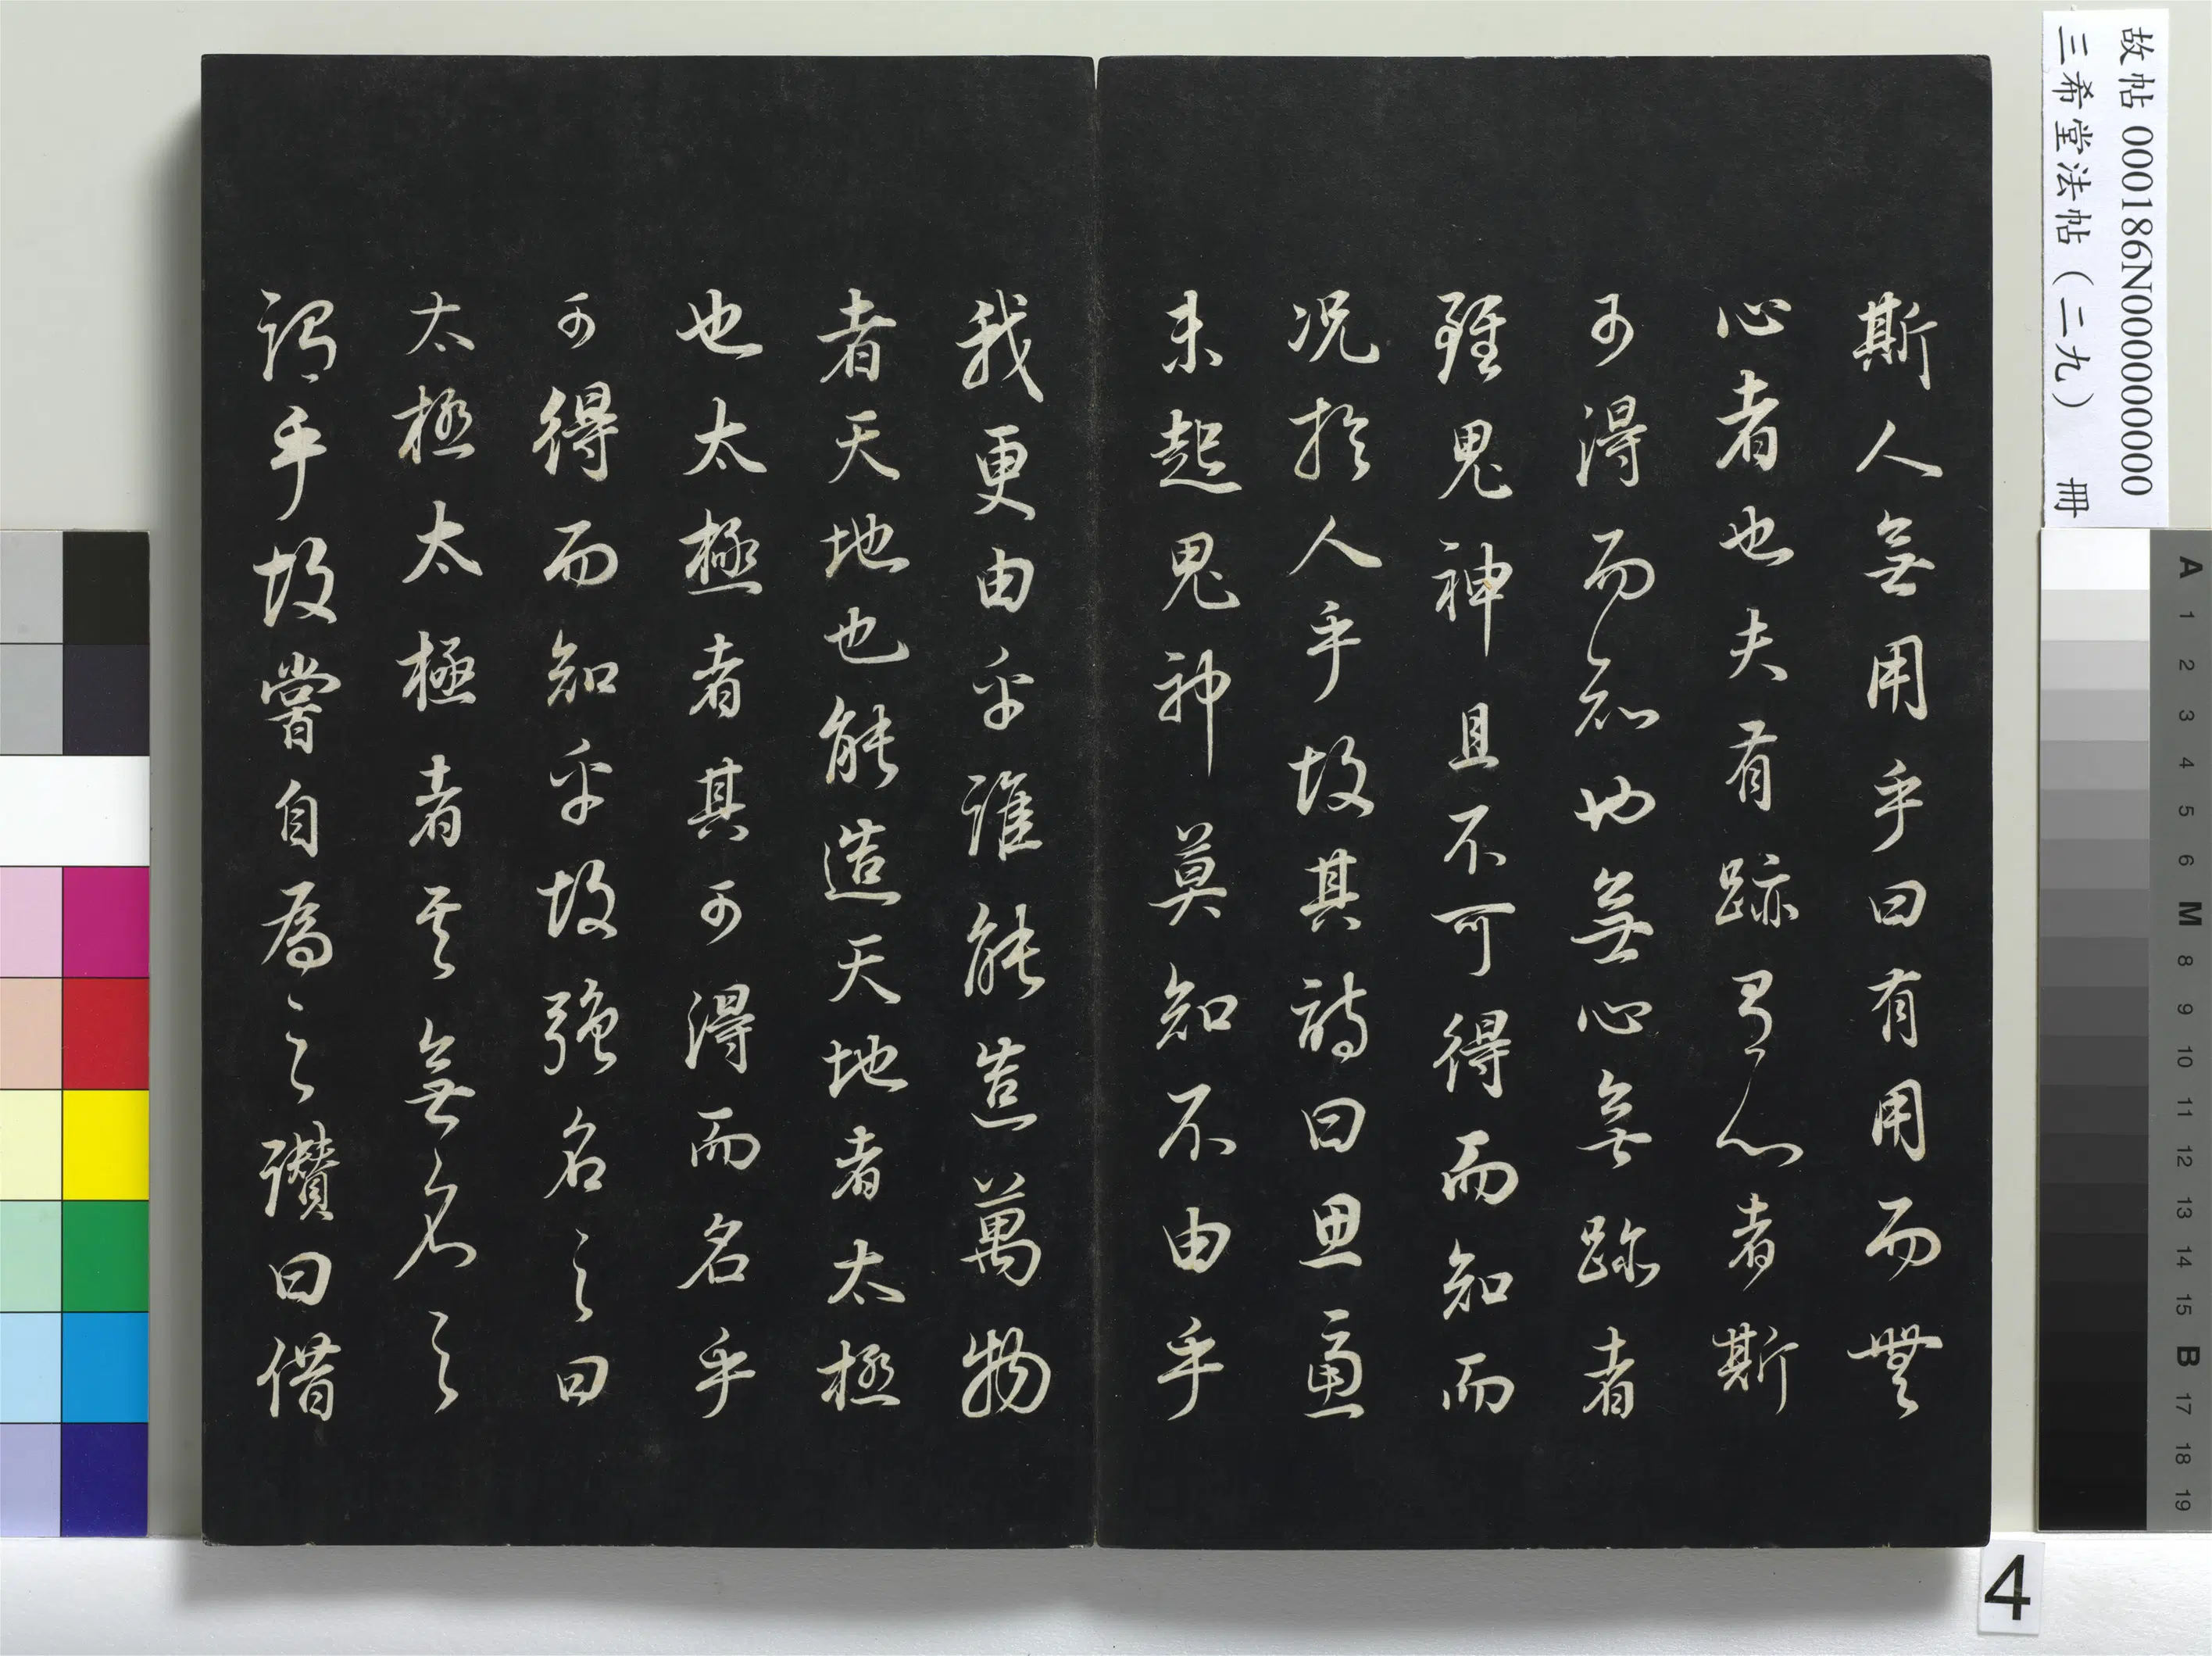 斯人無用乎曰有用而無
心者也夫有跡有心者斯
可得而知也無心無跡者
雖鬼神且不可得而知而
況於人乎故其詩曰思慮
未起鬼神莫知不由乎
我更由乎誰能造萬物
者天地也能造天地者太極
也太極者其可得而名乎
可得而知乎故強名之曰
太極太極者其無名之
謂乎故嘗自為之讚曰借
故帖 000186N000000000
三希堂法帖（二九） 冊
A 1 2 3 4 5 6 M 8 9 10 11 12 13 14 15 B 17 18 19
4